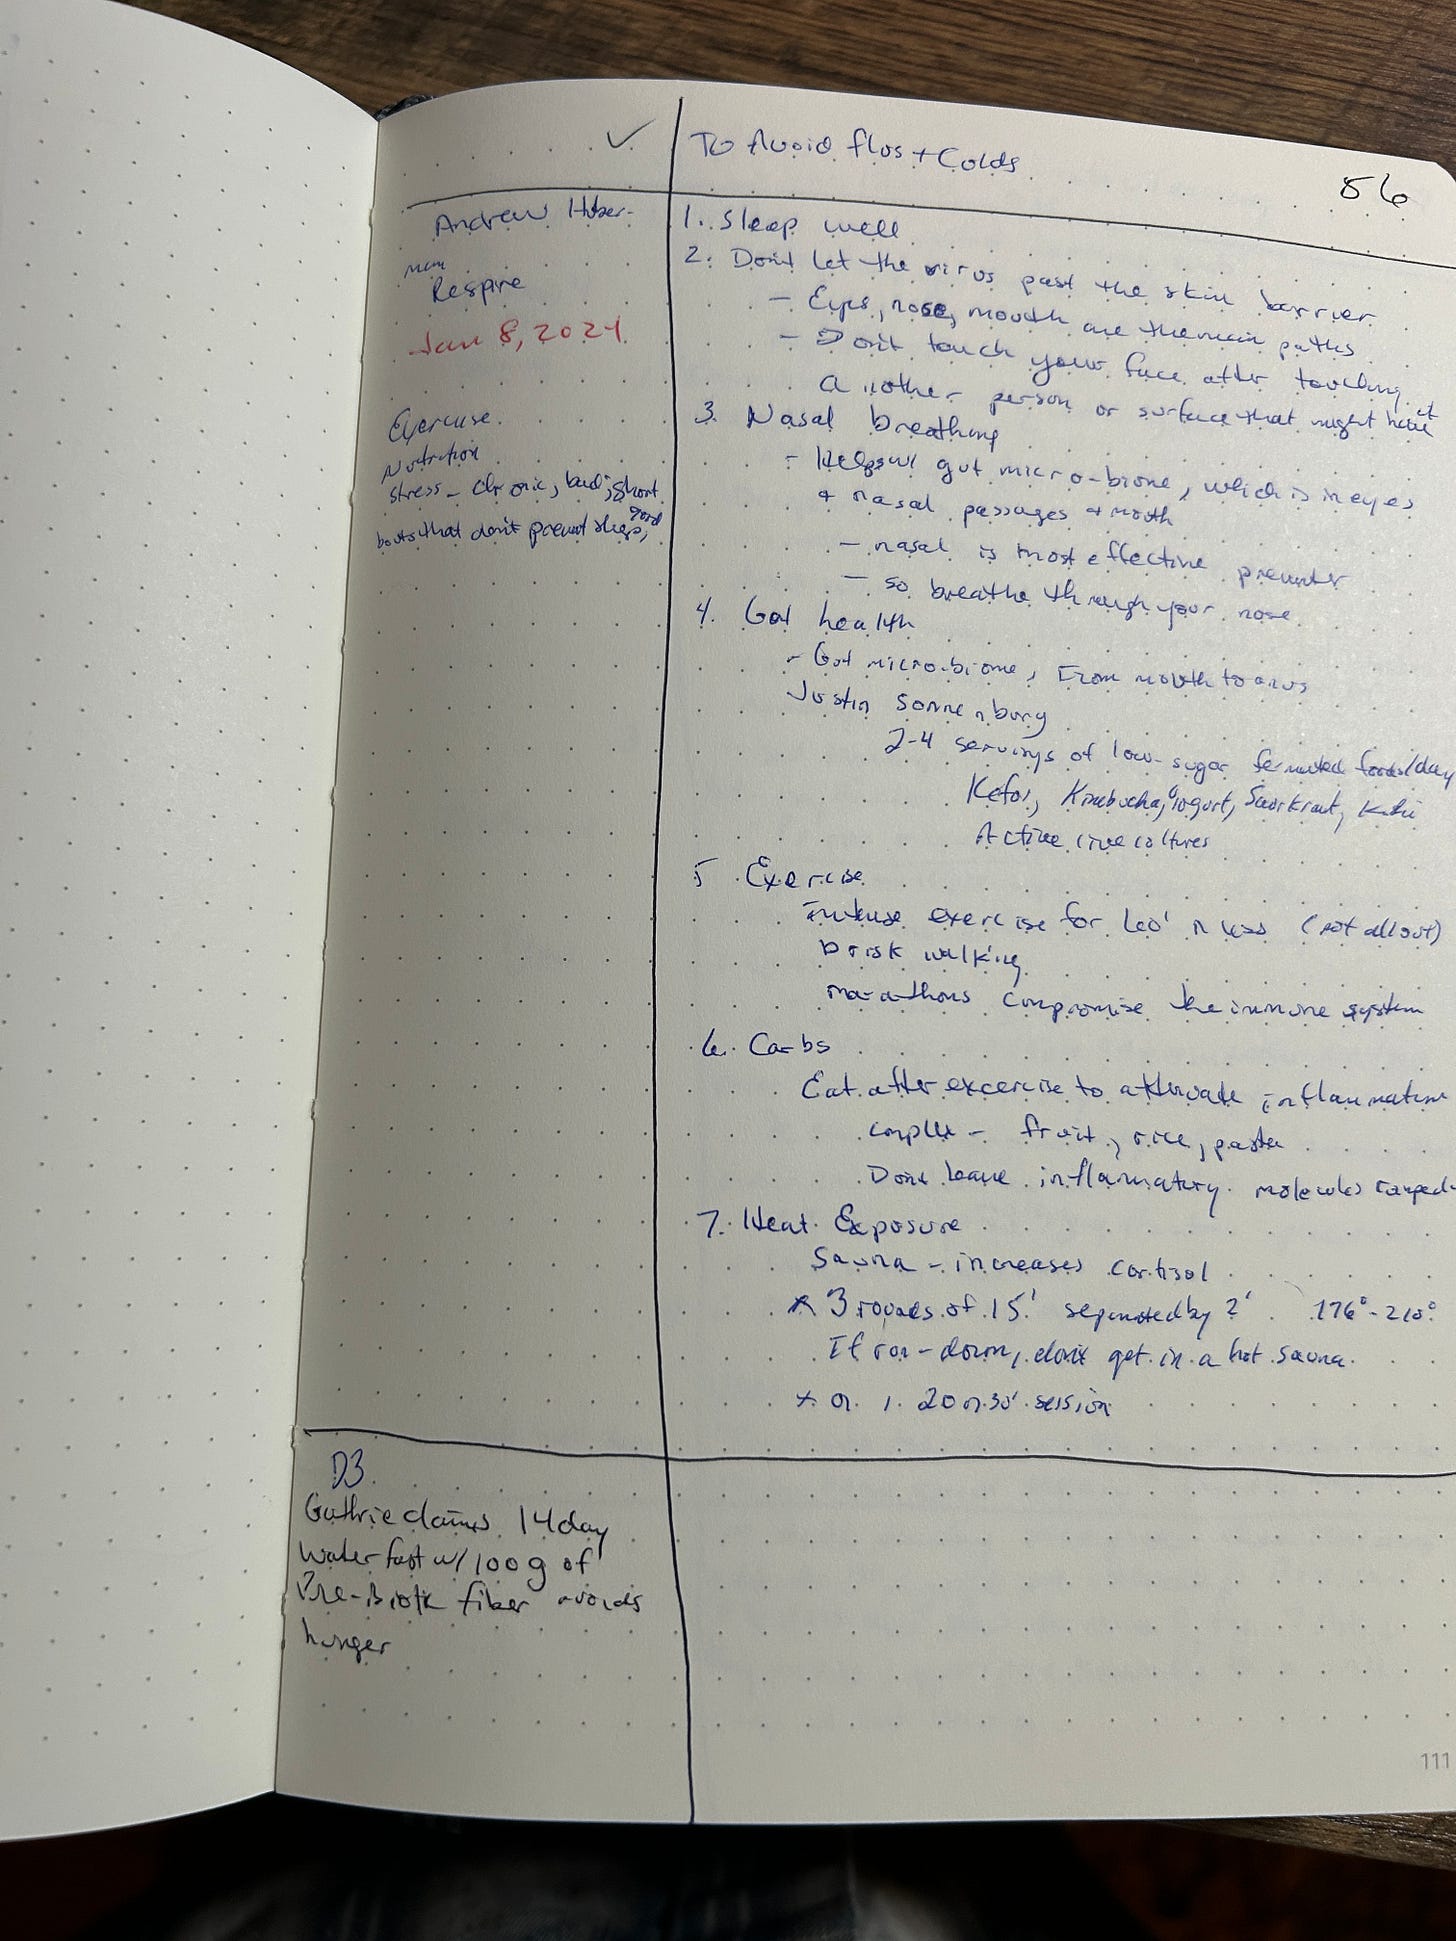 ✓
To Avoid flus + Colds
56
Andrew Huber-
man
Respire
Jan 8, 2024
Exercise
Nutrition
stress - chronic, bad; short
bouts that don't prevent sleep, good
1. Sleep well
2. Don't let the virus past the skin barrier
- Eyes, nose, mouth are the main paths
- Don't touch your face after touching
another person or surface that might have it
3 Nasal breathing
- Helps w/ gut micro-biome, which is in eyes
+ nasal passages + mouth
- nasal is most effective preventer
- so breathe through your nose
4. Gut health
- Gut micro-biome, From mouth to anus
Justin Sonnenburg
2-4 servings of low-sugar fermented foods/day
Kefir, Kombucha, Yogurt, Saurkraut,
Active live cultures
5 Exercise
Intense exercise for 60' or less (not all out)
Brisk walking
marathons compromise the immune system
6. Carbs
Eat after excercise to attenuate inflammation
complex - fruit, rice, pasta
Don't leave inflammatory molecules ramped-
7. Heat Exposure
Sauna - increases cortisol
* 3 rounds of 15' separated by 2' 176°-210°
If run-down, don't get in a hot sauna.
* or 1 20 or 30' session
D3
Guthrie claims 14 day
Water fast w/ 100g of
Pre-Biotic fiber avoids
hunger
111